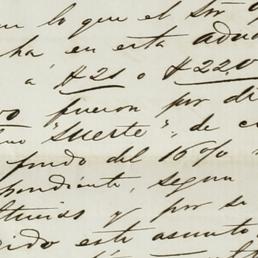 en lo que el Sr
ha en esta adua
á $21 o $22.0
fueron por di
"suerte", de c
fondo del 16%
pendiente, segun
y por se
cido este asunto